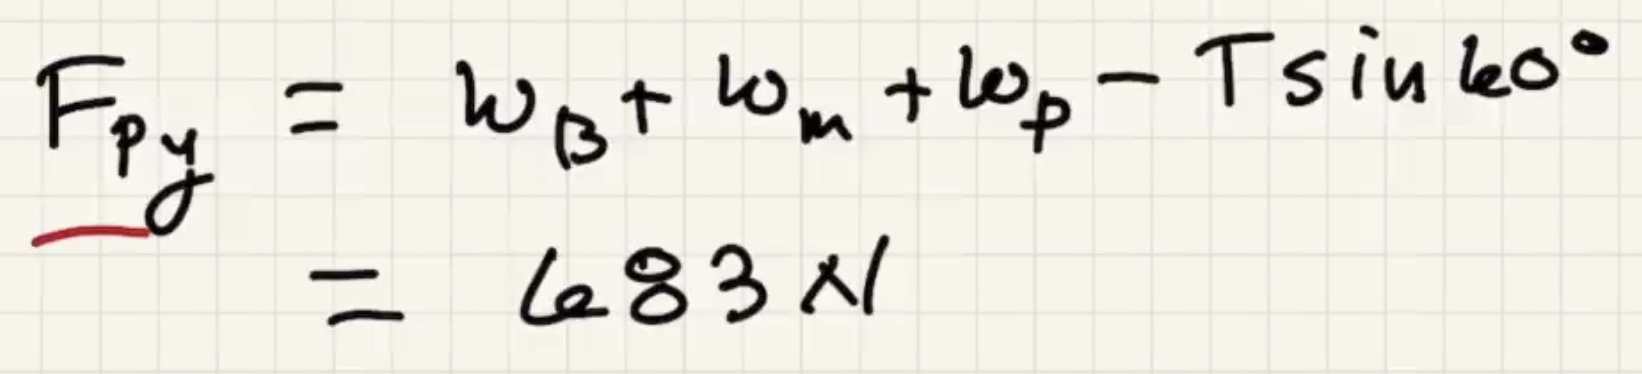 F_py = W_B + W_m + W_p − T sin 60°
= 683 N